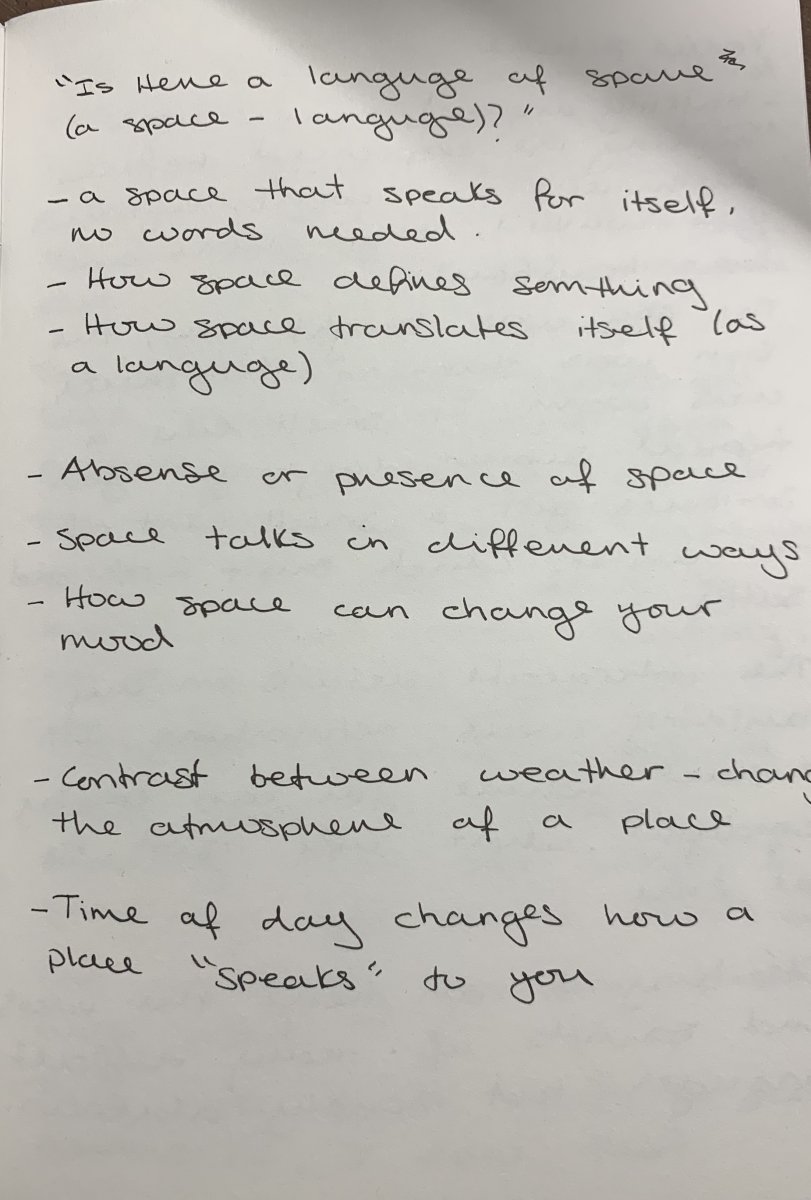 "Is there a languge of space
(a space - languge)?"
- a space that speaks for itself,
no words needed.
- How space defines somthing
- How space translates itself (as
a languge)
- Absense or presence of space
- Space talks in different ways
- How space can change your
mood
- Contrast between weather - chang
the atmosphere of a place
- Time of day changes how a
place "speaks" to you